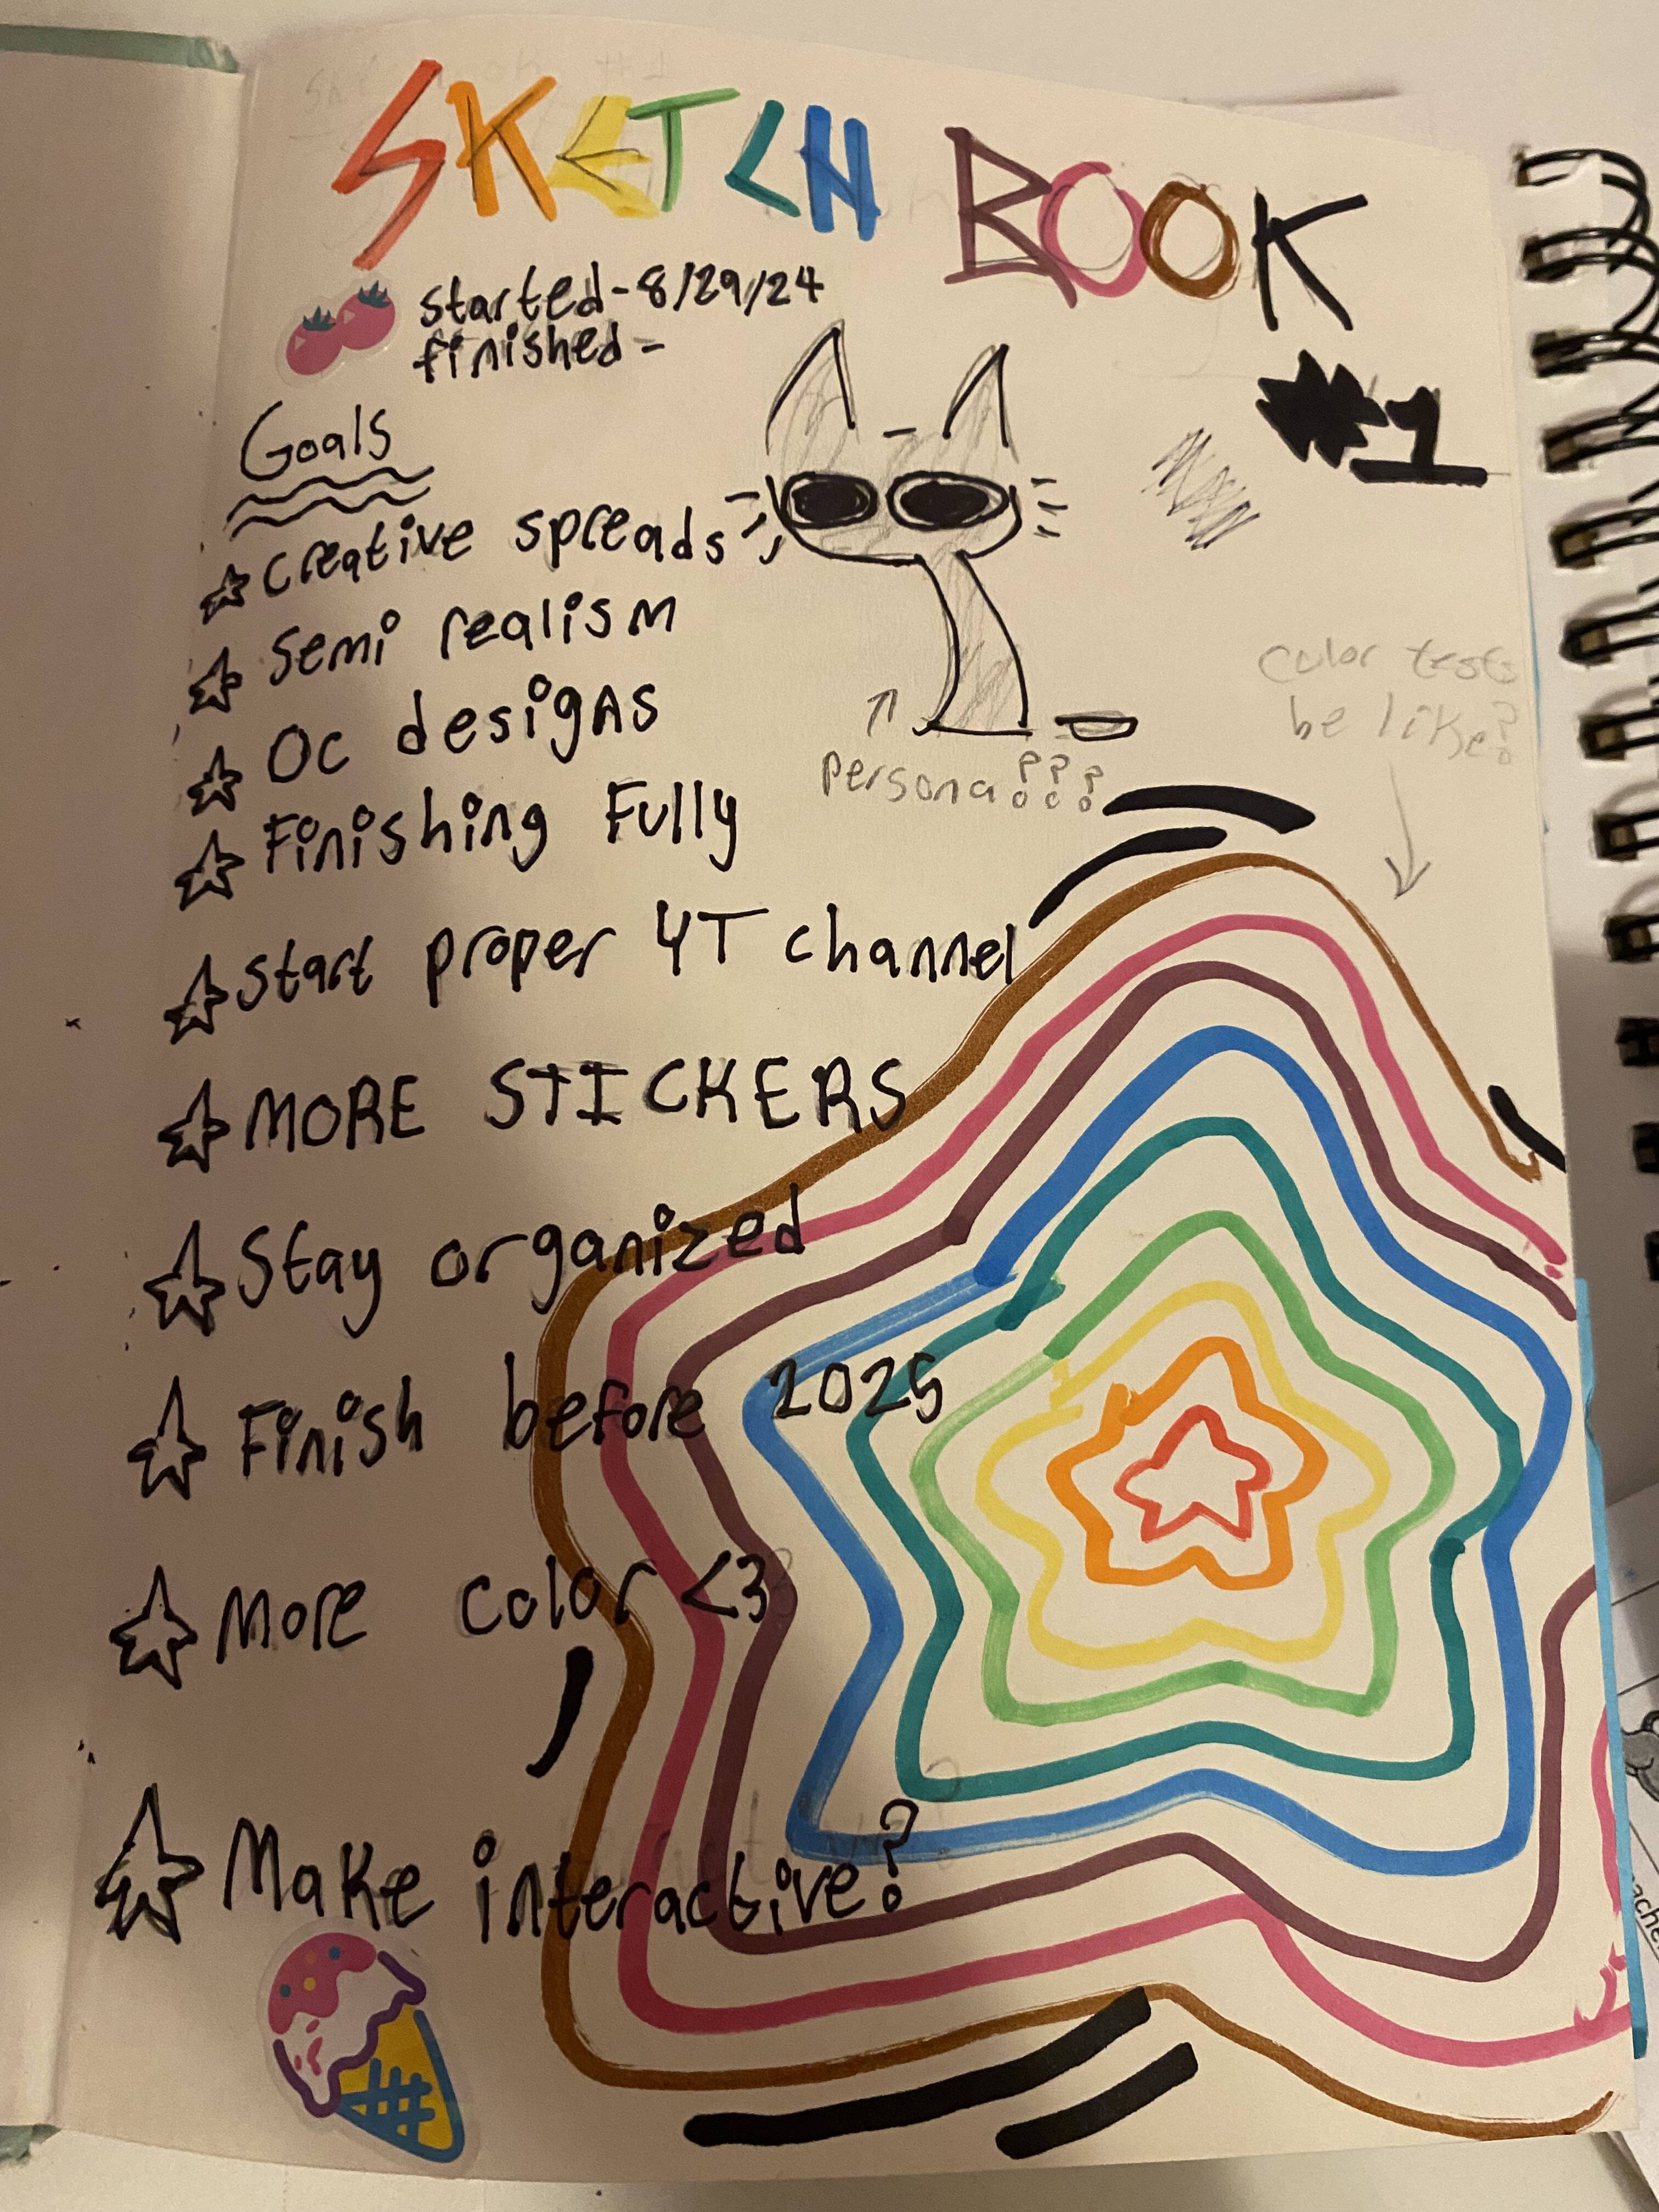 SKETCH BOOK
started-8/29/24
finished-
#1
Goals
creative spreads
Semi realism
Oc designs
Finishing Fully
start proper YT channel
MORE STICKERS
Stay organized
Finish before 2025
More color <3
Make interactive?
persona???
color tests
be like?